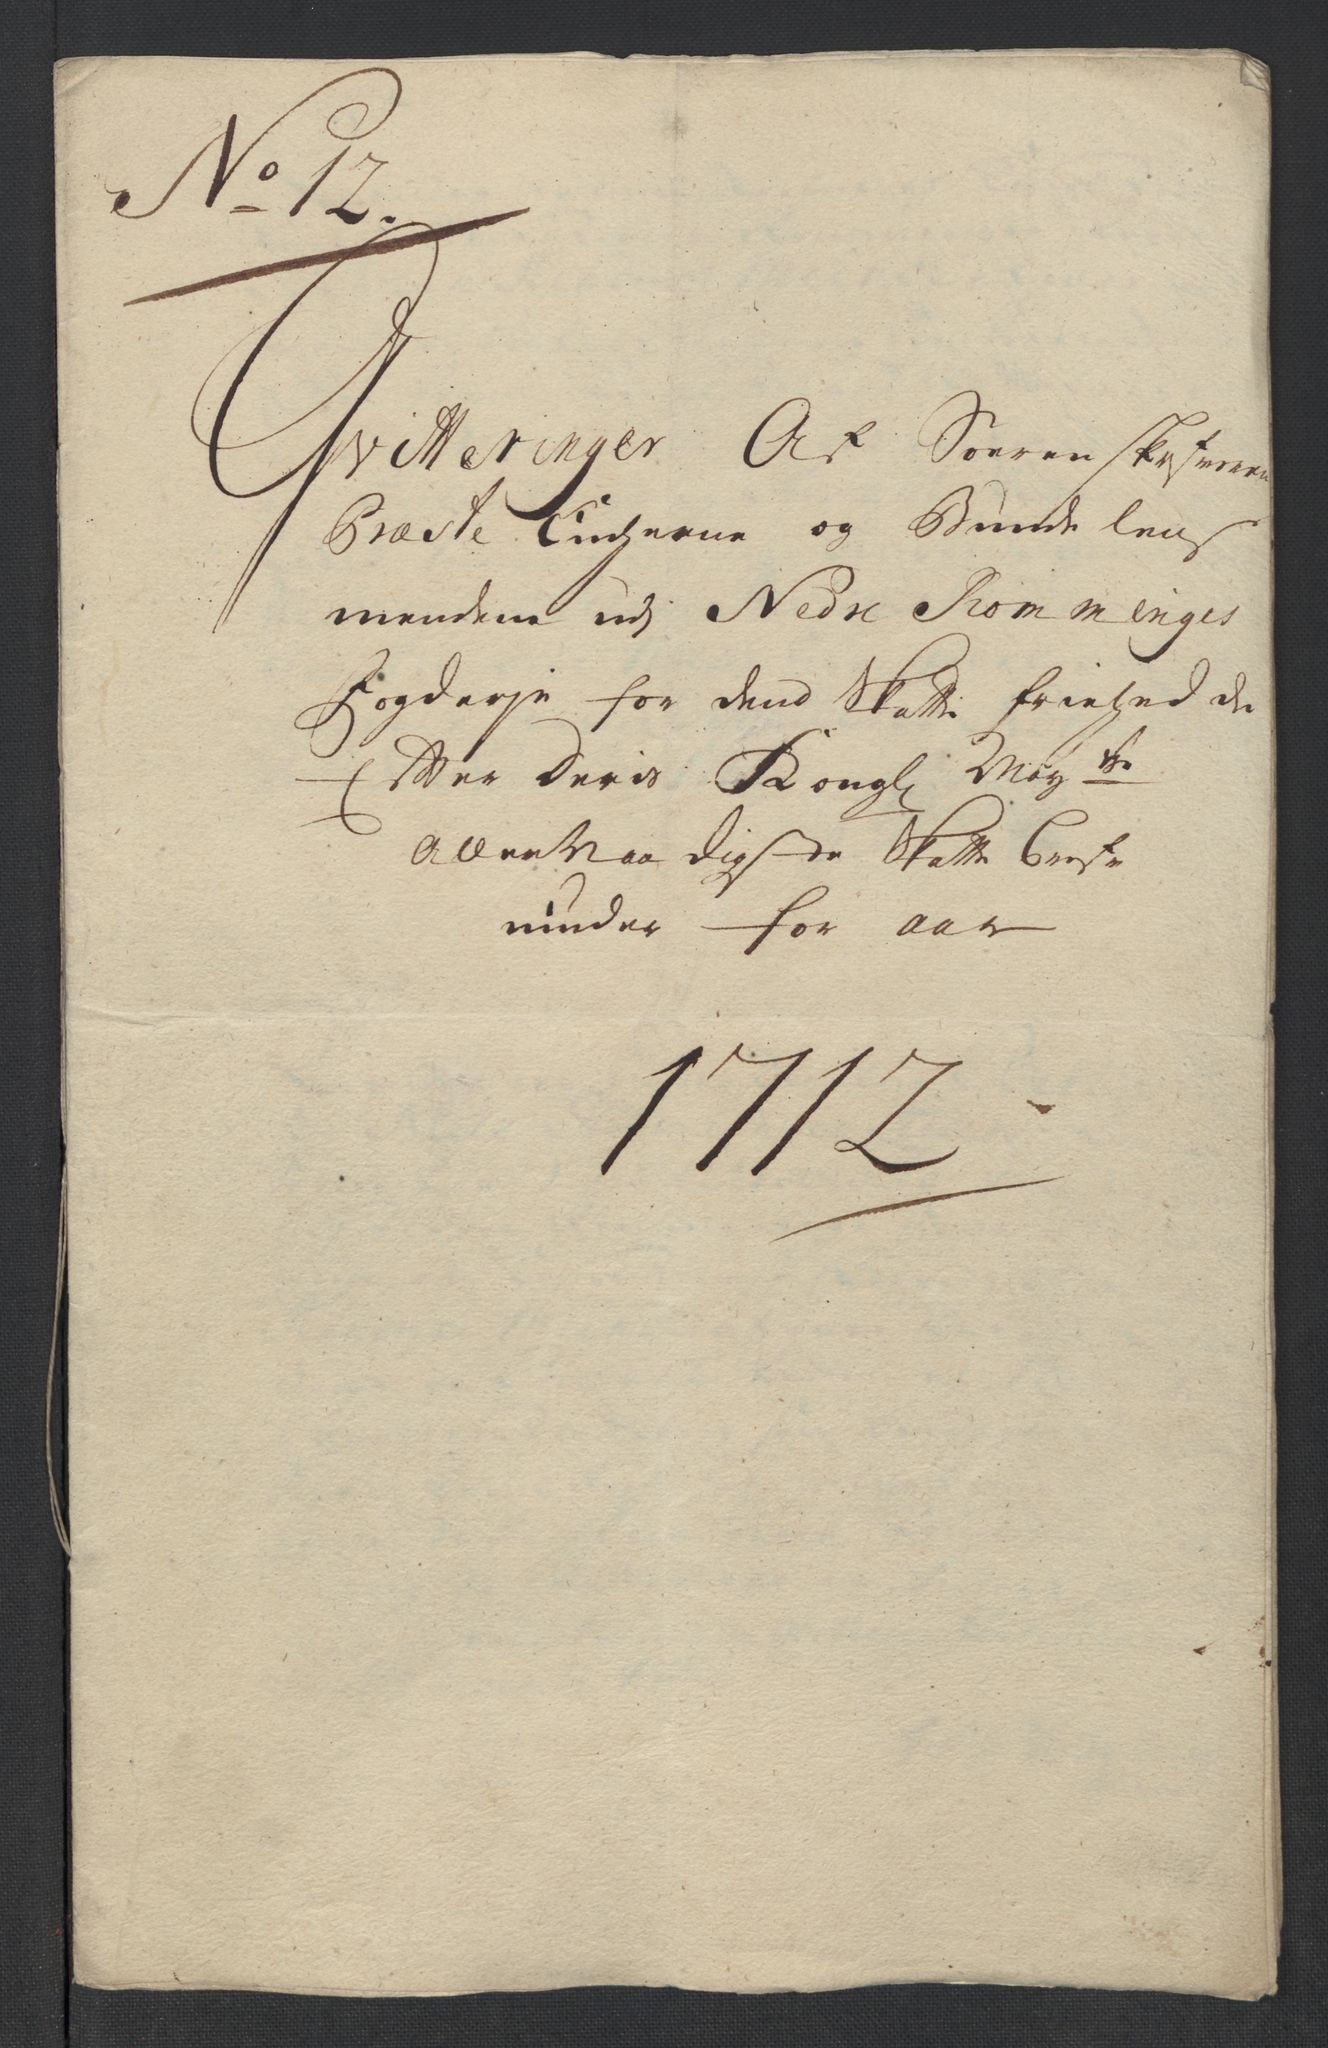 No 12.
Qvitteringer Af Soerenskrifveren
Præste Enckerne og Bunde lens
mendene udj Nedre Rommeriges
Fogderje for dend Skatte friehed de
Efter Deris Kongl May tts
allernaadigste Skatte
ninder for aar
1712